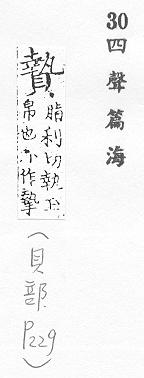 30四聲篇海
贄 脂利切執玉
帛也亦作摯
(貝部 P229)